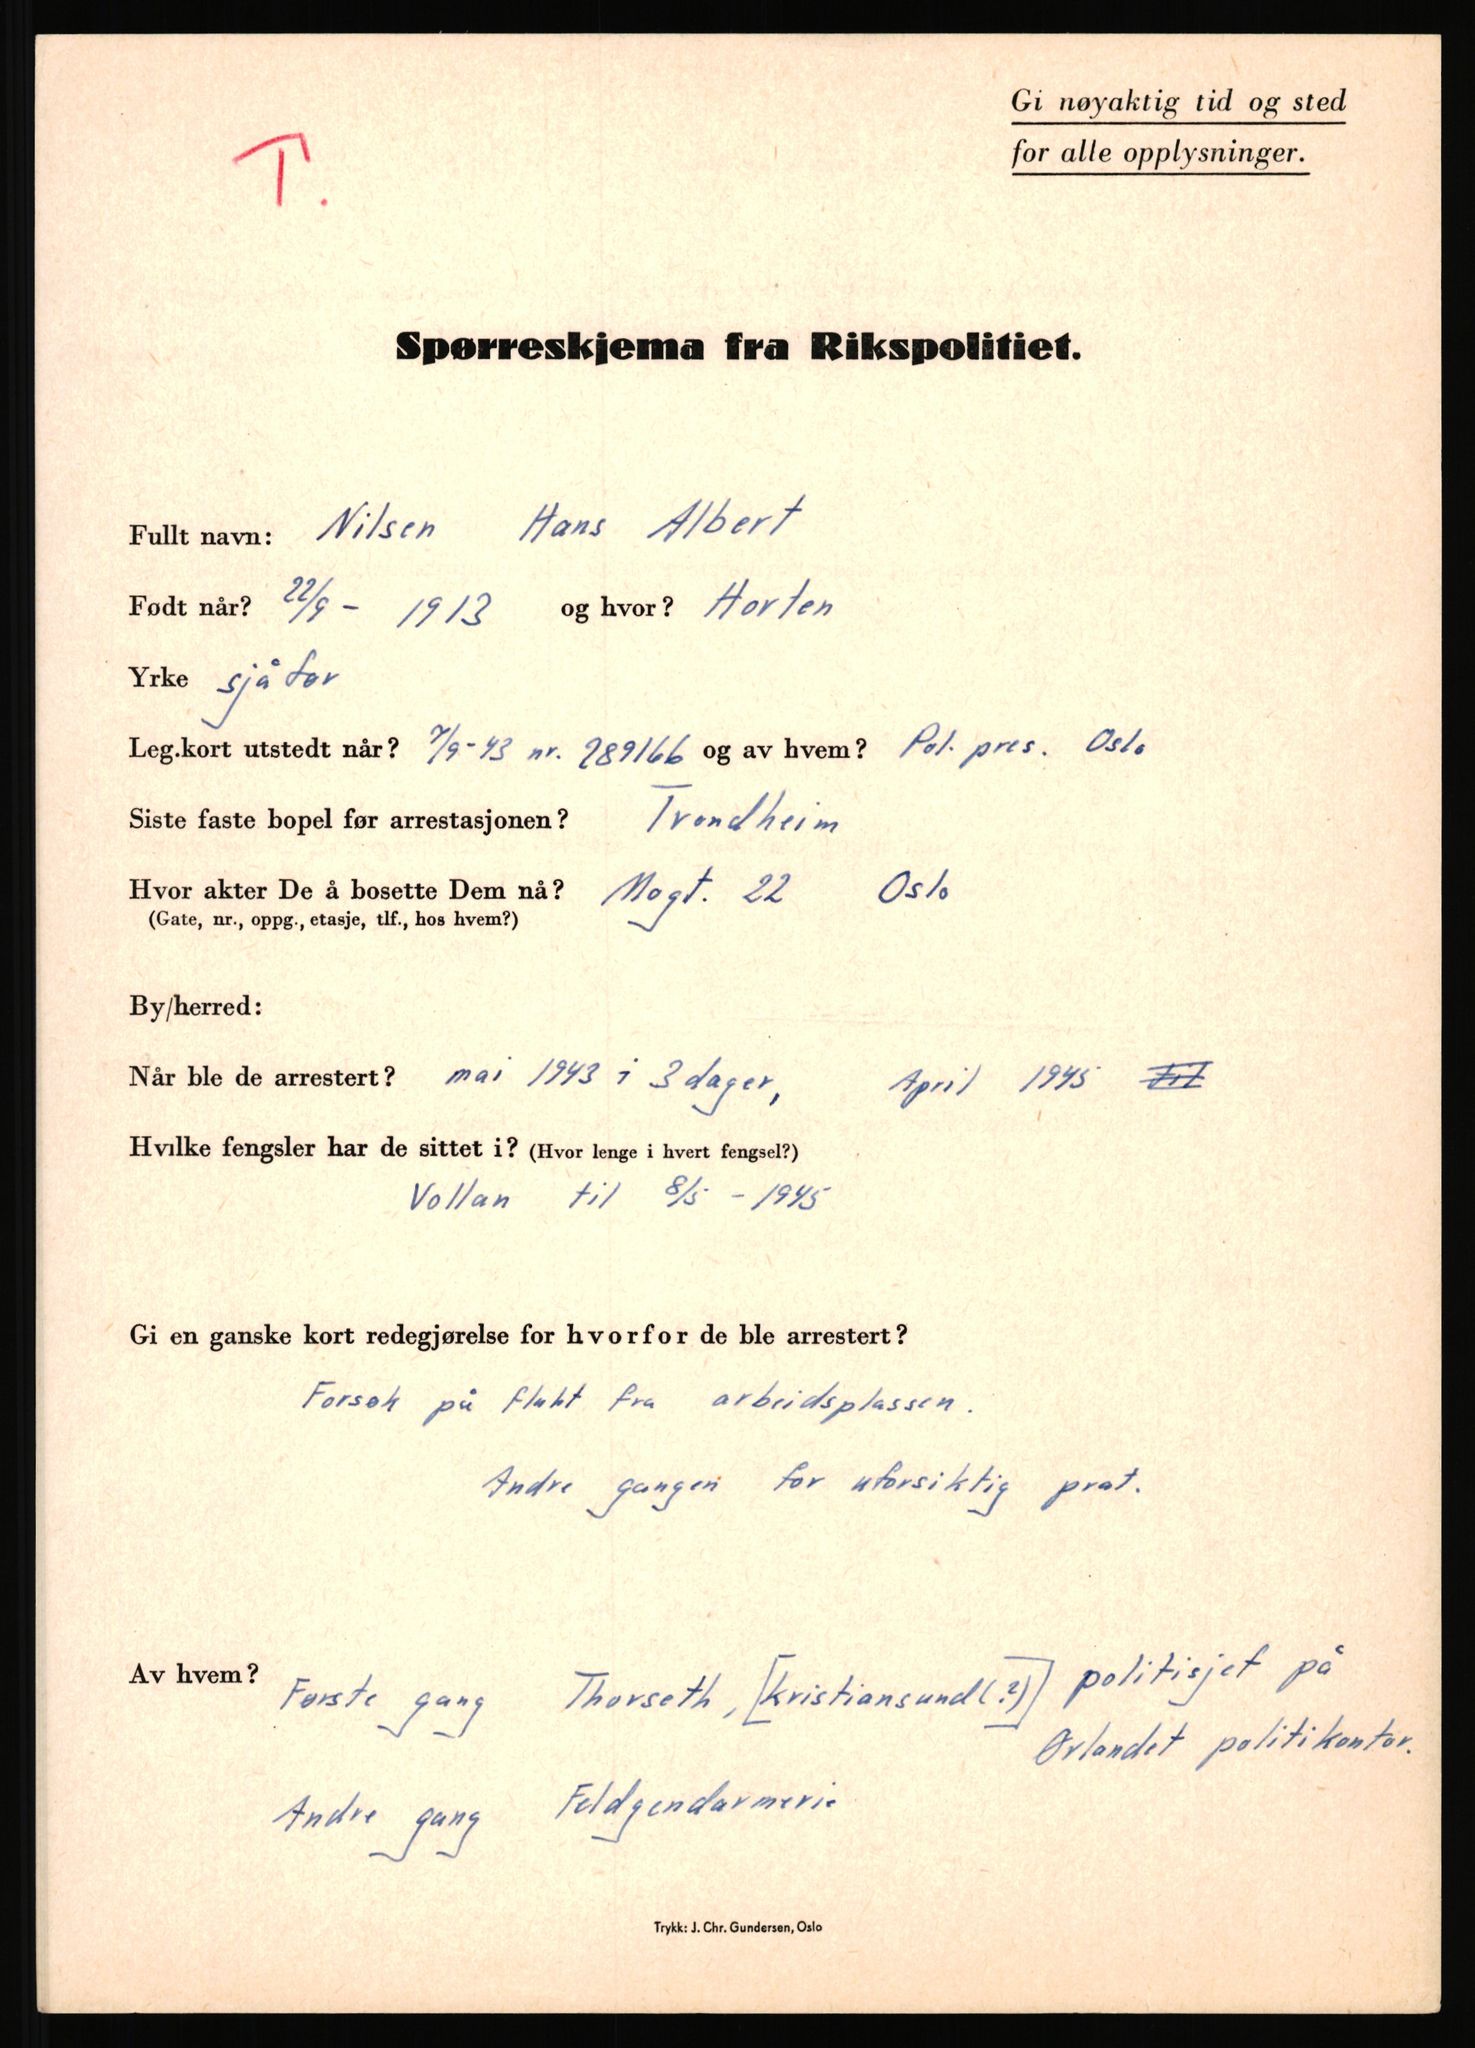 Gi nøyaktig tid og sted
for alle opplysninger.
T.
Spørreskjema fra Rikspolitiet.
Fullt navn: Nilsen Hans Albert
Født når? 22/9 - 1913 og hvor? Horten
Yrke sjåfør
Leg.kort utstedt når? 7/9-43 nr. 289166 og av hvem? Pol. pres. Oslo
Siste faste bopel før arrestasjonen? Trondheim
Hvor akter De å bosette Dem nå? Mogt. 22 Oslo
(Gate, nr., oppg., etasje, tlf., hos hvem?)
By/herred:
Når ble de arrestert? mai 1943 i 3 dager, April 1945 til
Hvilke fengsler har de sittet i? (Hvor lenge i hvert fengsel?)
Vollan til 8/5 - 1945
Gi en ganske kort redegjørelse for hvorfor de ble arrestert?
Forsøk på flukt fra arbeidsplassen.
Andre gangen for uforsiktig prat.
Av hvem? Første gang Thorseth, [Kristiansund(?)] politisjef på
Ørlandet politikontor.
Andre gang Feldgendarmerie
Trykk: J. Chr. Gundersen, Oslo